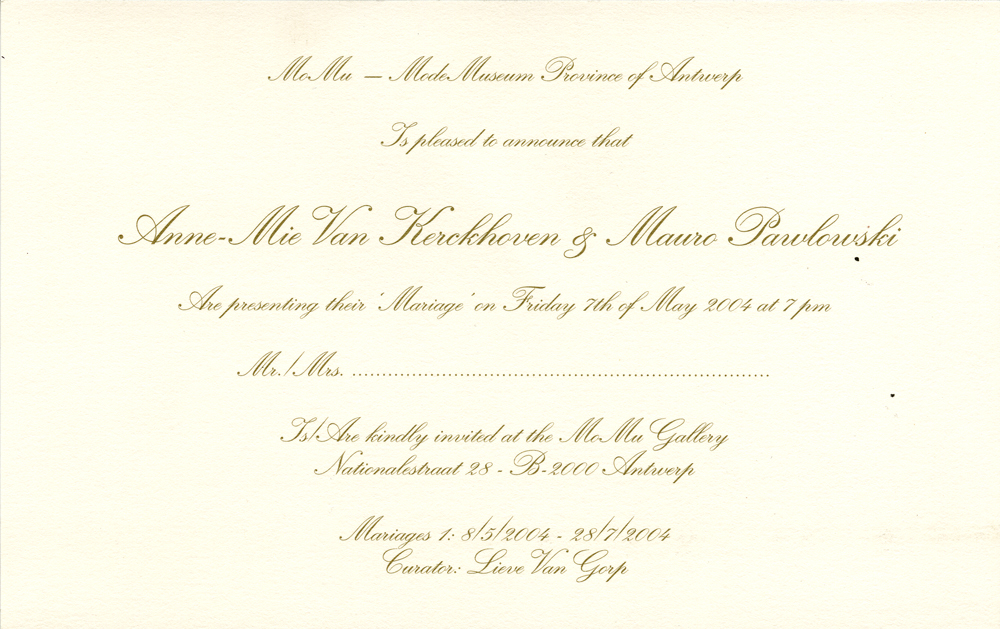 MoMu – ModeMuseum Province of Antwerp
Is pleased to announce that
Anne-Mie Van Kerckhoven & Mauro Pawlowski
Are presenting their 'Mariage' on Friday 7th of May 2004 at 7 pm
Mr./Mrs. ......................................................................
Is/Are kindly invited at the MoMu Gallery
Nationalestraat 28 - B-2000 Antwerp
Mariages 1: 8/5/2004 - 28/7/2004
Curator: Lieve Van Gorp